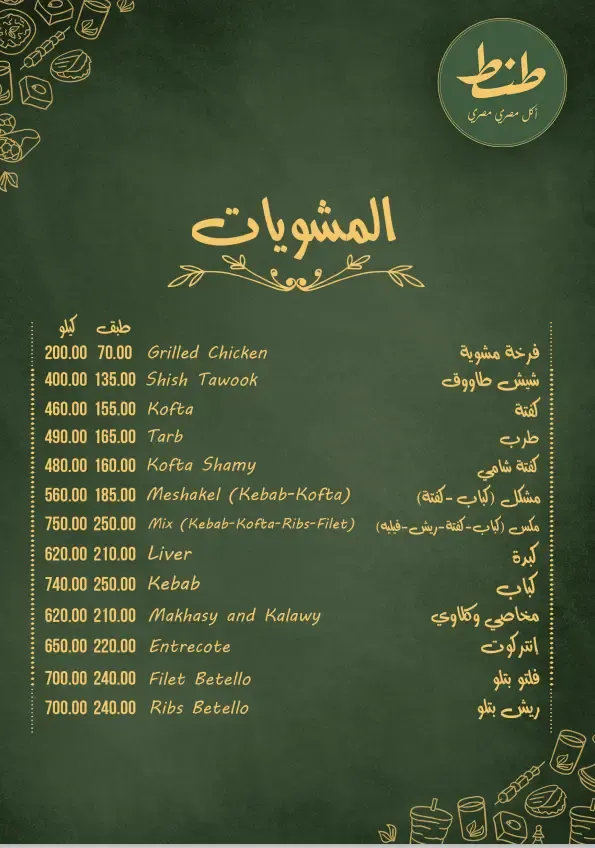 طنط
أكل مصري مصري
المشويات
كيلو طبق
200.00 70.00 Grilled Chicken فرخة مشوية
400.00 135.00 Shish Tawook شيش طاووق
460.00 155.00 Kofta كفتة
490.00 165.00 Tarb طرب
480.00 160.00 Kofta Shamy كفتة شامي
560.00 185.00 Meshakel (Kebab-Kofta) مشكل (كباب -كفتة)
750.00 250.00 Mix (Kebab-Kofta-Ribs-Filet) مكس (كباب-كفتة-ريش-فيليه)
620.00 210.00 Liver كبدة
740.00 250.00 Kebab كباب
620.00 210.00 Makhasy and Kalawy مخاصي وكلاوي
650.00 220.00 Entrecote إنتركوت
700.00 240.00 Filet Betello فلتو بتلو
700.00 240.00 Ribs Betello ريش بتلو